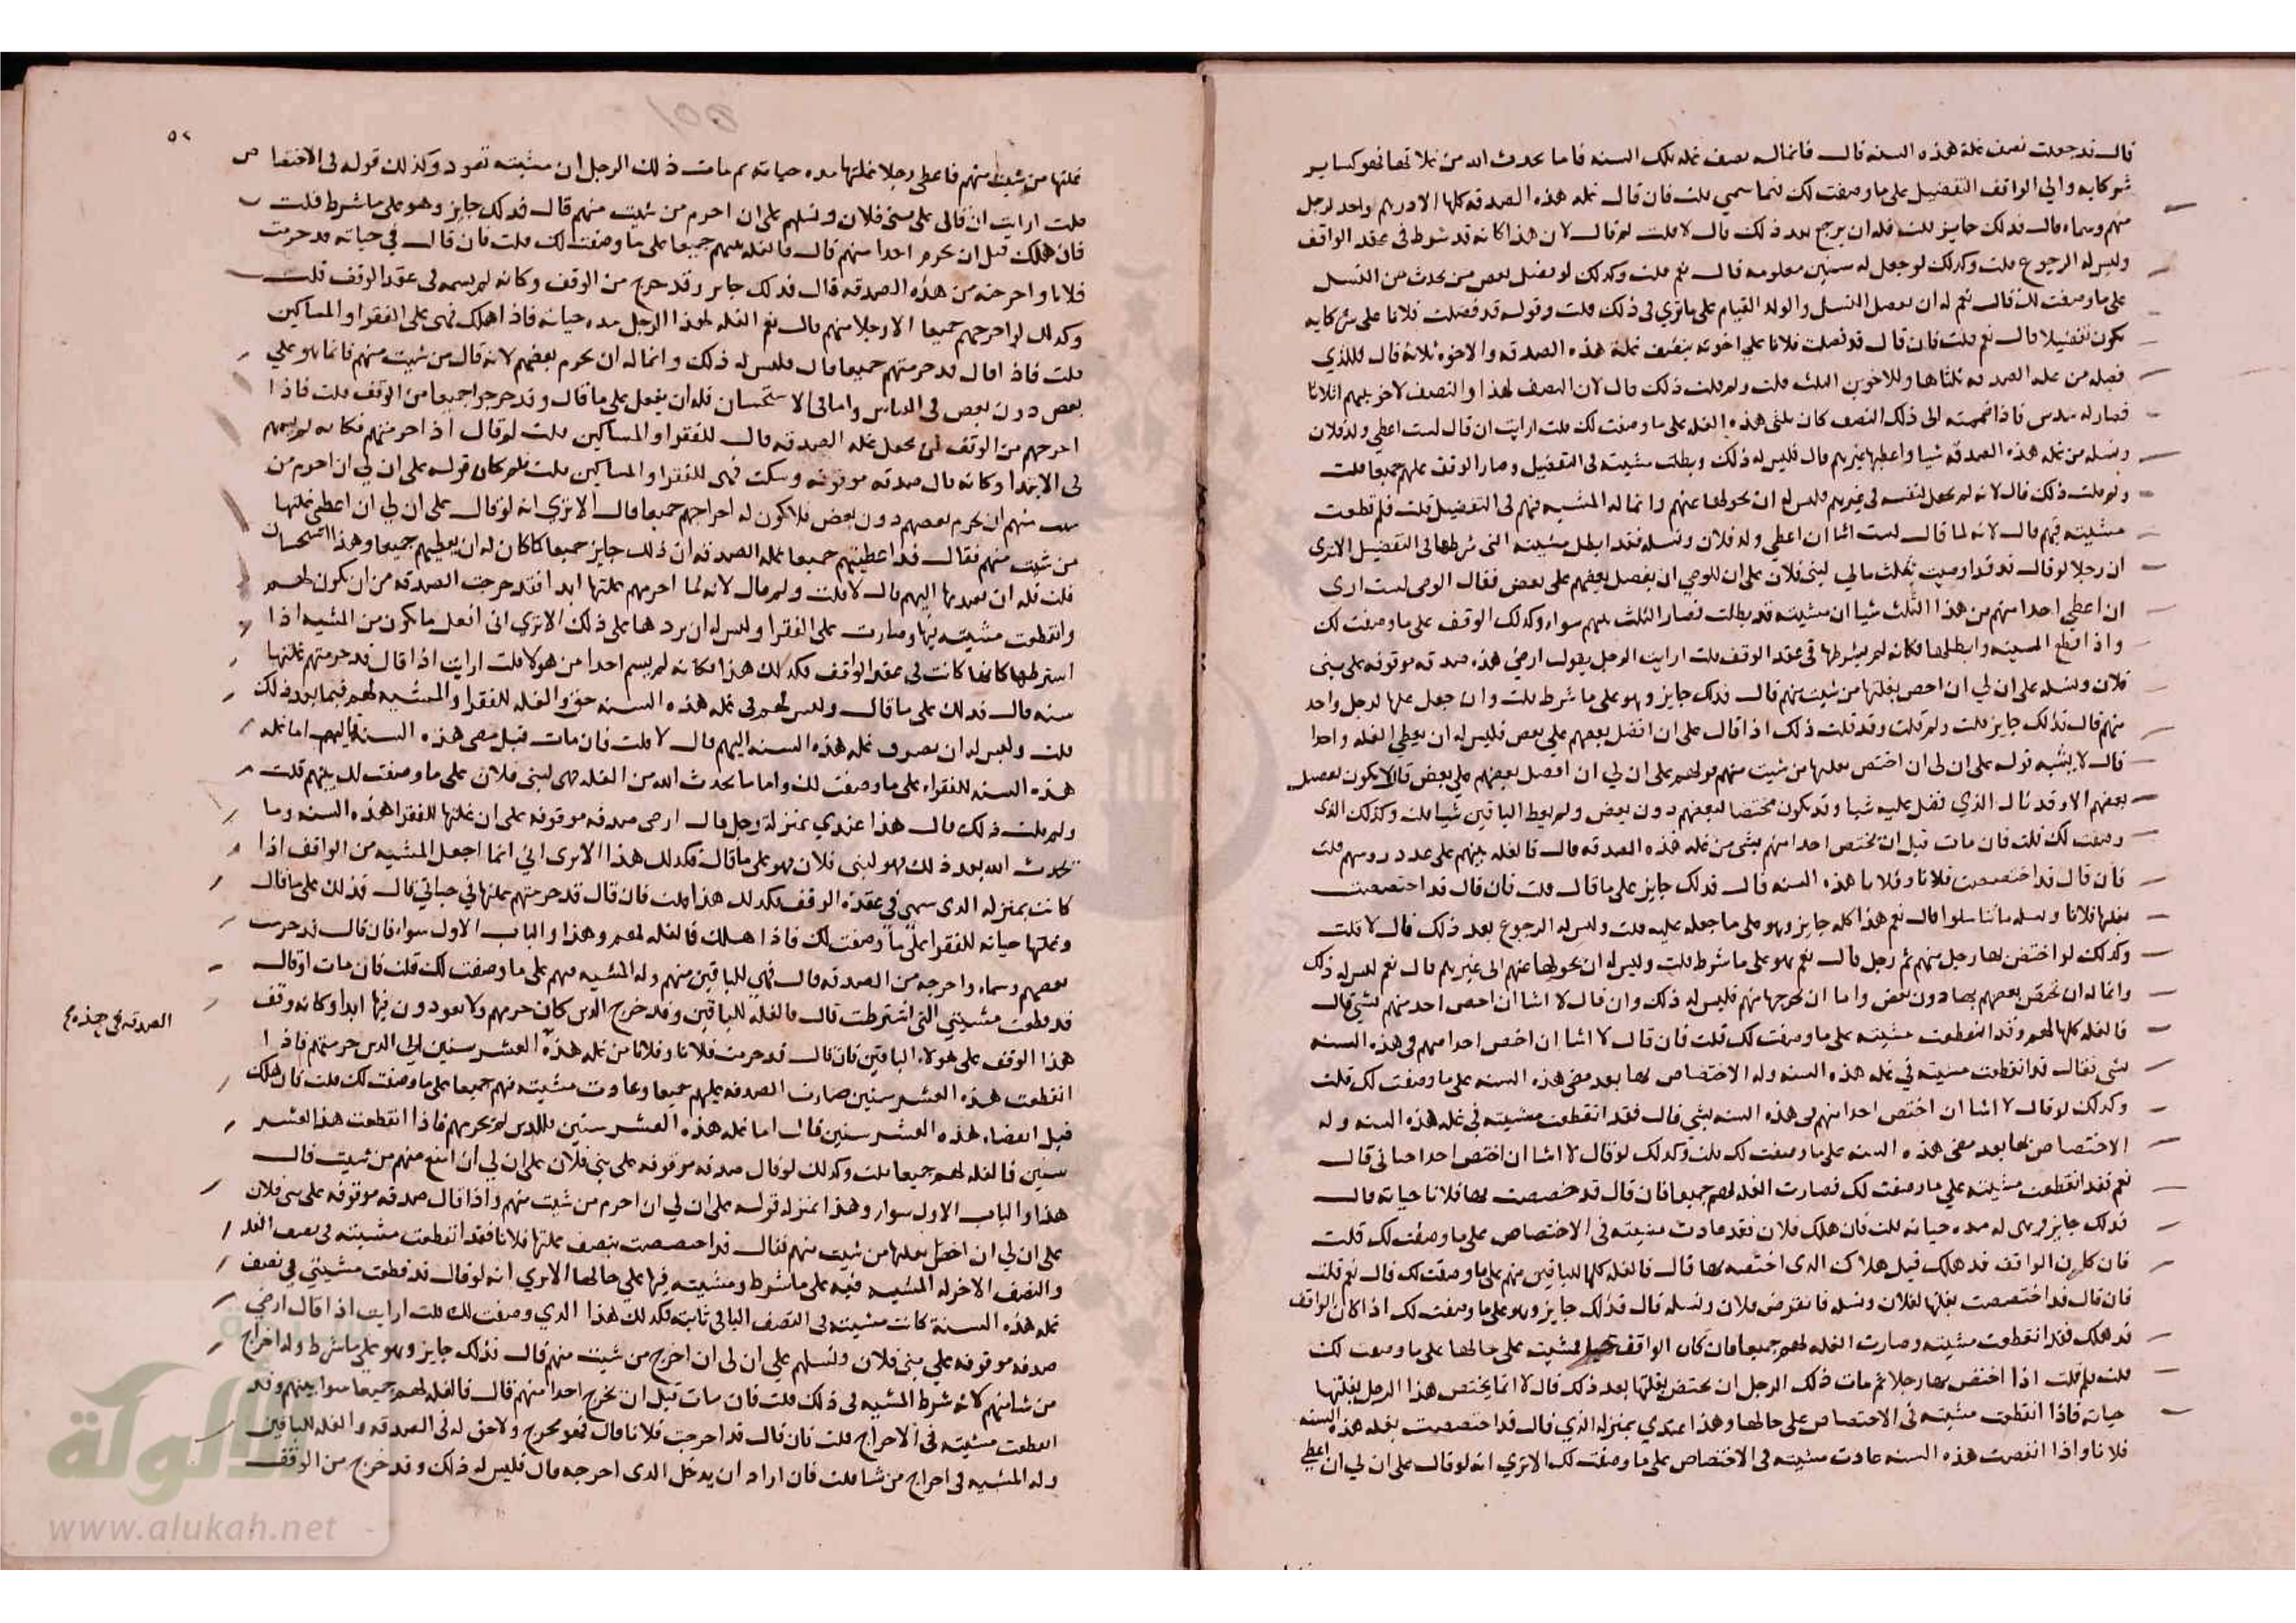 قال قد جعلت نصف غلة هذه السنه قال فانما له نصف غله تلك السنه فاما ما يحدث الله من غلاتها فهو كساير
شركايه والي الواقف التفضيل على ما وصفت لك فيما سمي قلت فان قال غله هذه الصدقه كلها الا درهم واحد لرجل
منهم وسماه قال فذلك جايز قلت فله ان يرجع بعد ذلك قال لا قلت لم قال لان هذا كانه قد شرط في عقد الواقف
وليس له الرجوع قلت وكذلك لو جعل له سنين معلومه قال نعم قلت وكذلك لو فضل بعض من يحدث من النسل
على ما وصفت لك قال نعم له ان يفضل النسل والولد القيام على ما تري في ذلك قلت وقوله قد فضلت فلانا على شركايه
يكون تفضيلا قال نعم قلت فان قال قد فضلت فلانا علي اخوته بنصف غلة هذه الصدقه والاخوه ثلاثة قال فللذي
فضله من غله الصدقه ثلثاها وللاخوين الثلث قلت ولم قلت ذلك قال لان النصف لهذا والنصف الاخر بينهم اثلاثا
فصار له سدس فاذا ضممته الى ذلك النصف كان ثلثي هذه الغله على ما وصفت لك قلت ارايت ان قال لست اعطي ولد فلان
ونسله من غله هذه الصدقه شيا واعطيها غيرهم قال فليس له ذلك وبطلت مشيته في التفضيل وصار الوقف عليهم جميعا قلت
ولم قلت ذلك قال لانه لم يجعل لنفسه في غيرهم فليس له ان يحولها عنهم وانما له المشيه فيهم في التفضيل قلت فلم قطعت
مشيته فيهم قال لانه لما قال لست اشا ان اعطي ولد فلان ونسله فقد ابطل مشيته التي شرطها في التفضيل الا تري
ان رجلا لو قال قد اوصيت بثلث مالي لبني فلان على ان للوصي ان يفضل بعضهم على بعض فقال الوصي لست اري
ان اعطي احدا منهم من هذا الثلث شيا ان مشيته قد بطلت فصار الثلث بينهم سواء وكذلك الوقف على ما وصفت لك
واذا قطع المشيه وابطلها فكانه لم يشرطها في عقد الوقف قلت ارايت الرجل يقول ارضي هذه صدقه موقوفه على بني
فلان ونسله على ان لي ان اخص بغلتها من شيت منهم قال فذلك جايز وهو على ما شرط قلت وان جعل غلتها لرجل واحد
منهم قال فذلك جايز قلت ولم قلت وقد قلت ذلك اذا قال على ان افضل بعضهم على بعض فليس له ان يعطي الغله واحدا
قال لا يشبه قوله على ان لي ان اختص بغلتها من شيت منهم قوله على ان لي ان افضل بعضهم على بعض قال لا يكون تفضيل
بعضهم الا وقد نال الذي فضل عليه شيا وقد يكون مختصا لبعضهم دون بعض ولم يعط الباقين شيا قلت وكذلك الذي
وصفت لك قلت فان مات قبل ان يختص احدا منهم بشي من غله هذه الصدقه قال فالغله بينهم على عدد روسهم قلت
فان قال قد اختصصت فلانا وفلانا هذه السنه قال فذلك جايز على ما قال قلت فان قال قد اختصصت
بغلتها فلانا ونسله ما تناسلوا قال نعم هذا كله جايز وهو على ما جعله عليه قلت وليس له الرجوع بعد ذلك قال لا قلت
وكذلك لو اختص بها رجل منهم ثم رجل قال نعم هو على ما شرط قلت وليس له ان يحولها عنهم الى غيرهم قال نعم ليس له ذلك
وانما له ان يختص بعضهم بها دون بعض واما ان يخرجها منهم فليس له ذلك وان قال لا اشا ان اخص احد منهم بشي قال
فالغله كلها لهم وقد انقطعت مشيته على ما وصفت لك قلت فان قال لا اشا ان اخص احدا منهم في هذه السنه
بشي فقال قد انقطعت مشيته في غله هذه السنه وله الاختصاص بها بعد مضي هذه السنه على ما وصفت لك قلت
وكذلك لو قال لا اشا ان اختص احدا منهم في هذه السنه بشي قال فقد انقطعت مشيته في غله هذه السنه وله
الاختصاص بها بعد مضي هذه السنه على ما وصفت لك قلت وكذلك لو قال لا اشا ان اختص احدا حياتي قال
نعم فقد انقطعت مشيته على ما وصفت لك فصارت الغله لهم جميعا فان قال قد خصصت بها فلانا حياته قال
فذلك جايز وهي له مده حياته قلت فان هلك فلان فقد عادت مشيته في الاختصاص على ما وصفت لك قلت
فان كان الواقف قد هلك قبل هلاك الذي اختصه بها قال فالغله كلها للباقين منهم على ما وصفت لك قال نعم قلت
فان قال قد اختصصت بغلتها لفلان ونسله فانقرض فلان ونسله قال فذلك جايز وهو على ما وصفت لك اذا كان الواقف
قد هلك فقد انقطعت مشيته وصارت الغله لهم جميعا وان كان الواقف حيا فمشيته على حالها على ما وصفت لك
قلت فلم قلت اذا اختص بها رجلا ثم مات ذلك الرجل ان يختص بغلتها بعد ذلك قال لا انما يختص هذا الرجل بغلتها
حياته فاذا انقطعت مشيته في الاختصاص على حالها وهذا عندي بمنزلة الذي قال قد اختصصت بغله هذه السنه
فلانا واذا انقضت هذه السنه عادت مشيته في الاختصاص على ما وصفت لك الا تري انه لو قال على ان لي ان اعطي
٥٢
غلتها من شيت منهم فاعطي رجلا غلتها مده حياته ثم مات ذلك الرجل ان مشيته تعود وكذلك قوله في الاختصاص
قلت ارايت ان قال على بني فلان ونسلهم على ان احرم من شيت منهم قال فذلك جايز وهو على ما شرط قلت
فان هلك قبل ان يحرم احدا منهم قال فالغله بينهم جميعا على ما وصفت لك قلت فان قال في حياته قد حرمت
فلانا واخرجته من هذه الصدقه قال فذلك جايز وقد خرج من الوقف وكانه لم يسمه في عقد الوقف قلت
وكذلك لو اخرجهم جميعا الا رجلا منهم قال نعم الغله لهذا الرجل مده حياته فاذا اهلك فهي على الفقرا والمساكين
قلت فاذا قال قد حرمتهم جميعا قال فليس له ذلك وانما له ان يحرم بعضهم لانه قال من شيت منهم فانما هو علي
بعض دون بعض في القياس واما في الاستحسان فله ان يفعل على ما قال وقد خرجوا جميعا من الوقف قلت فاذا
اخرجهم من الوقف لمن يجعل غله الصدقه قال للفقرا والمساكين قلت لم قال اذا حرمهم فكانه لم يسمهم
في الابتدا وكانه قال صدقه موقوفه وسكت فهي للفقرا والمساكين قلت فلم كان قوله على ان لي ان احرم من
شيت منهم ان يحرم بعضهم دون بعض فلا يكون له اخراجهم جميعا قال الا تري انه لو قال على ان لي ان اعطي غلتها
من شيت منهم فقال قد اعطيتهم جميعا غله الصدقه ان ذلك جايز جميعا كما كان له ان يعطيهم جميعا وهذا استحسان
قلت فله ان يعيدها اليهم قال لا قلت ولم قال لانه لما احرمهم غلتها ابدا فقد خرجت الصدقه من ان يكون لهم
وانقطعت مشيته فيها وصارت على الفقرا وليس له ان يردها على ذلك الا تري اني افعل ما يكون من المشيه اذا
اشترطها كانها كانت في عقد الواقف فكذلك هذا فكانه لم يسم احدا من هولا قلت ارايت اذا قال قد حرمتهم غلتها
سنه قال فذلك على ما قال وليس لهم في غله هذه السنه حق والغله للفقرا والمشيه لهم فيما بعد ذلك
قلت وليس له ان يصرف غله هذه السنه اليهم قال لا قلت فان مات قبل مضي هذه السنه قال لهم اما غله
هذه السنه للفقراء على ما وصفت لك واما ما يحدث الله من الغله فهي لبني فلان على ما وصفت لك بينهم قلت
ولم قلت ذلك قال هذا عندي بمنزلة رجل قال ارضي صدقه موقوفه على ان غلتها للفقرا هذه السنه وما
يحدث الله بعد ذلك فهو لبني فلان فهو على ما قال فكذلك هذا الا تري اني انما اجعل المشيه من الواقف اذا
كانت بمنزلة الذي سمي في عقدة الوقف فكذلك هذا قلت فان قال قد حرمتهم غلتها في حياتي قال فذلك على ما قال
وغلتها حياته للفقرا على ما وصفت لك فاذا هلك فالغله لهم وهذا والباب الاول سواء فان قال قد حرمت
بعضهم وسماه واخرجه من الصدقه قال فهي للباقين منهم وله المشيه فيهم على ما وصفت لك قلت فان مات او قال
قد قطعت مشيتي التي اشترطت قال فالغله للباقين وقد خرج الذين كان حرمهم ولا يعودون فيها ابدا وكانه وقف
هذا الوقف على هولاء الباقين فان قال قد حرمت فلانا وفلانا من غله هذه العشر سنين الي الذين حرمتهم فاذا
انقطعت هذه العشر سنين صارت الصدقه عليهم جميعا وعادت مشيته فيهم جميعا على ما وصفت لك قلت فان هلك
قبل انقضاء هذه العشر سنين قال اما غله هذه العشر سنين فللذين لم يحرمهم فاذا انقطعت هذا العشر
سنين فالغله لهم جميعا قلت وكذلك لو قال صدقه موقوفه على بني فلان على ان لي ان امنع منهم من شيت قال
هذا والباب الاول سواء وهذا بمنزلة قوله على ان لي ان احرم من شيت منهم واذا قال صدقه موقوفه على بني فلان
على ان لي ان اخص بغلتها من شيت منهم فقال قد اختصصت بنصف غلتها فلانا فقد انقطعت مشيته في نصف الغله
والنصف الاخر له المشيه فيه على ما شرط ومشيته فيها على حالها الا تري انه لو قال قد قطعت مشيتي في نصف
غله هذه السنة كانت مشيته في النصف الباقي ثابته فكذلك هذا الذي وصفت لك قلت ارايت اذا قال ارضي
صدقه موقوفه على بني فلان ونسلهم على ان لي ان اخرج من شيت منهم قال فذلك جايز وهو على ما شرط وله اخراج
من شا منهم لانه شرط المشيه في ذلك قلت فان مات قبل ان يخرج احدا منهم قال فالغله لهم جميعا سوا بينهم وقد
انقطعت مشيته في الاخراج قلت فان قال قد اخرجت فلانا قال فهو يخرج ولا حق له في الصدقه والغله للباقين
وله المشيه في اخراج من شا قلت فان اراد ان يدخل الذي اخرجه قال فليس له ذلك وقد خرج من الوقف
الألوكة
www.alukah.net